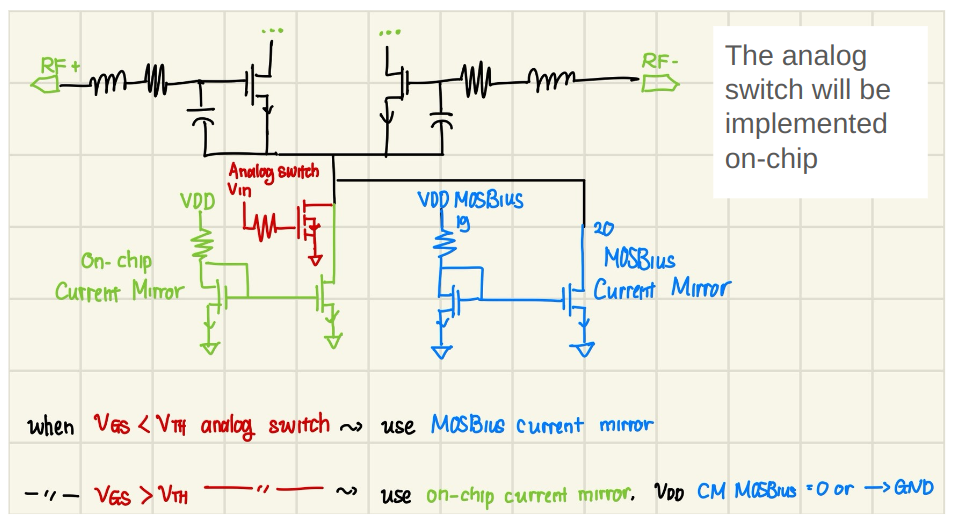 ...
...
RF+
RF-
The analog
switch will be
implemented
on-chip
Analog switch
Vin
VDD
VDD MOSBius
19
20
On-chip
Current Mirror
MOSBius
Current Mirror
when VGS < VTH analog switch ⤳ use MOSBius current mirror
-〃- VGS > VTH —〃— ⤳ use on-chip current mirror. VDD CM MOSBius = 0 or → GND